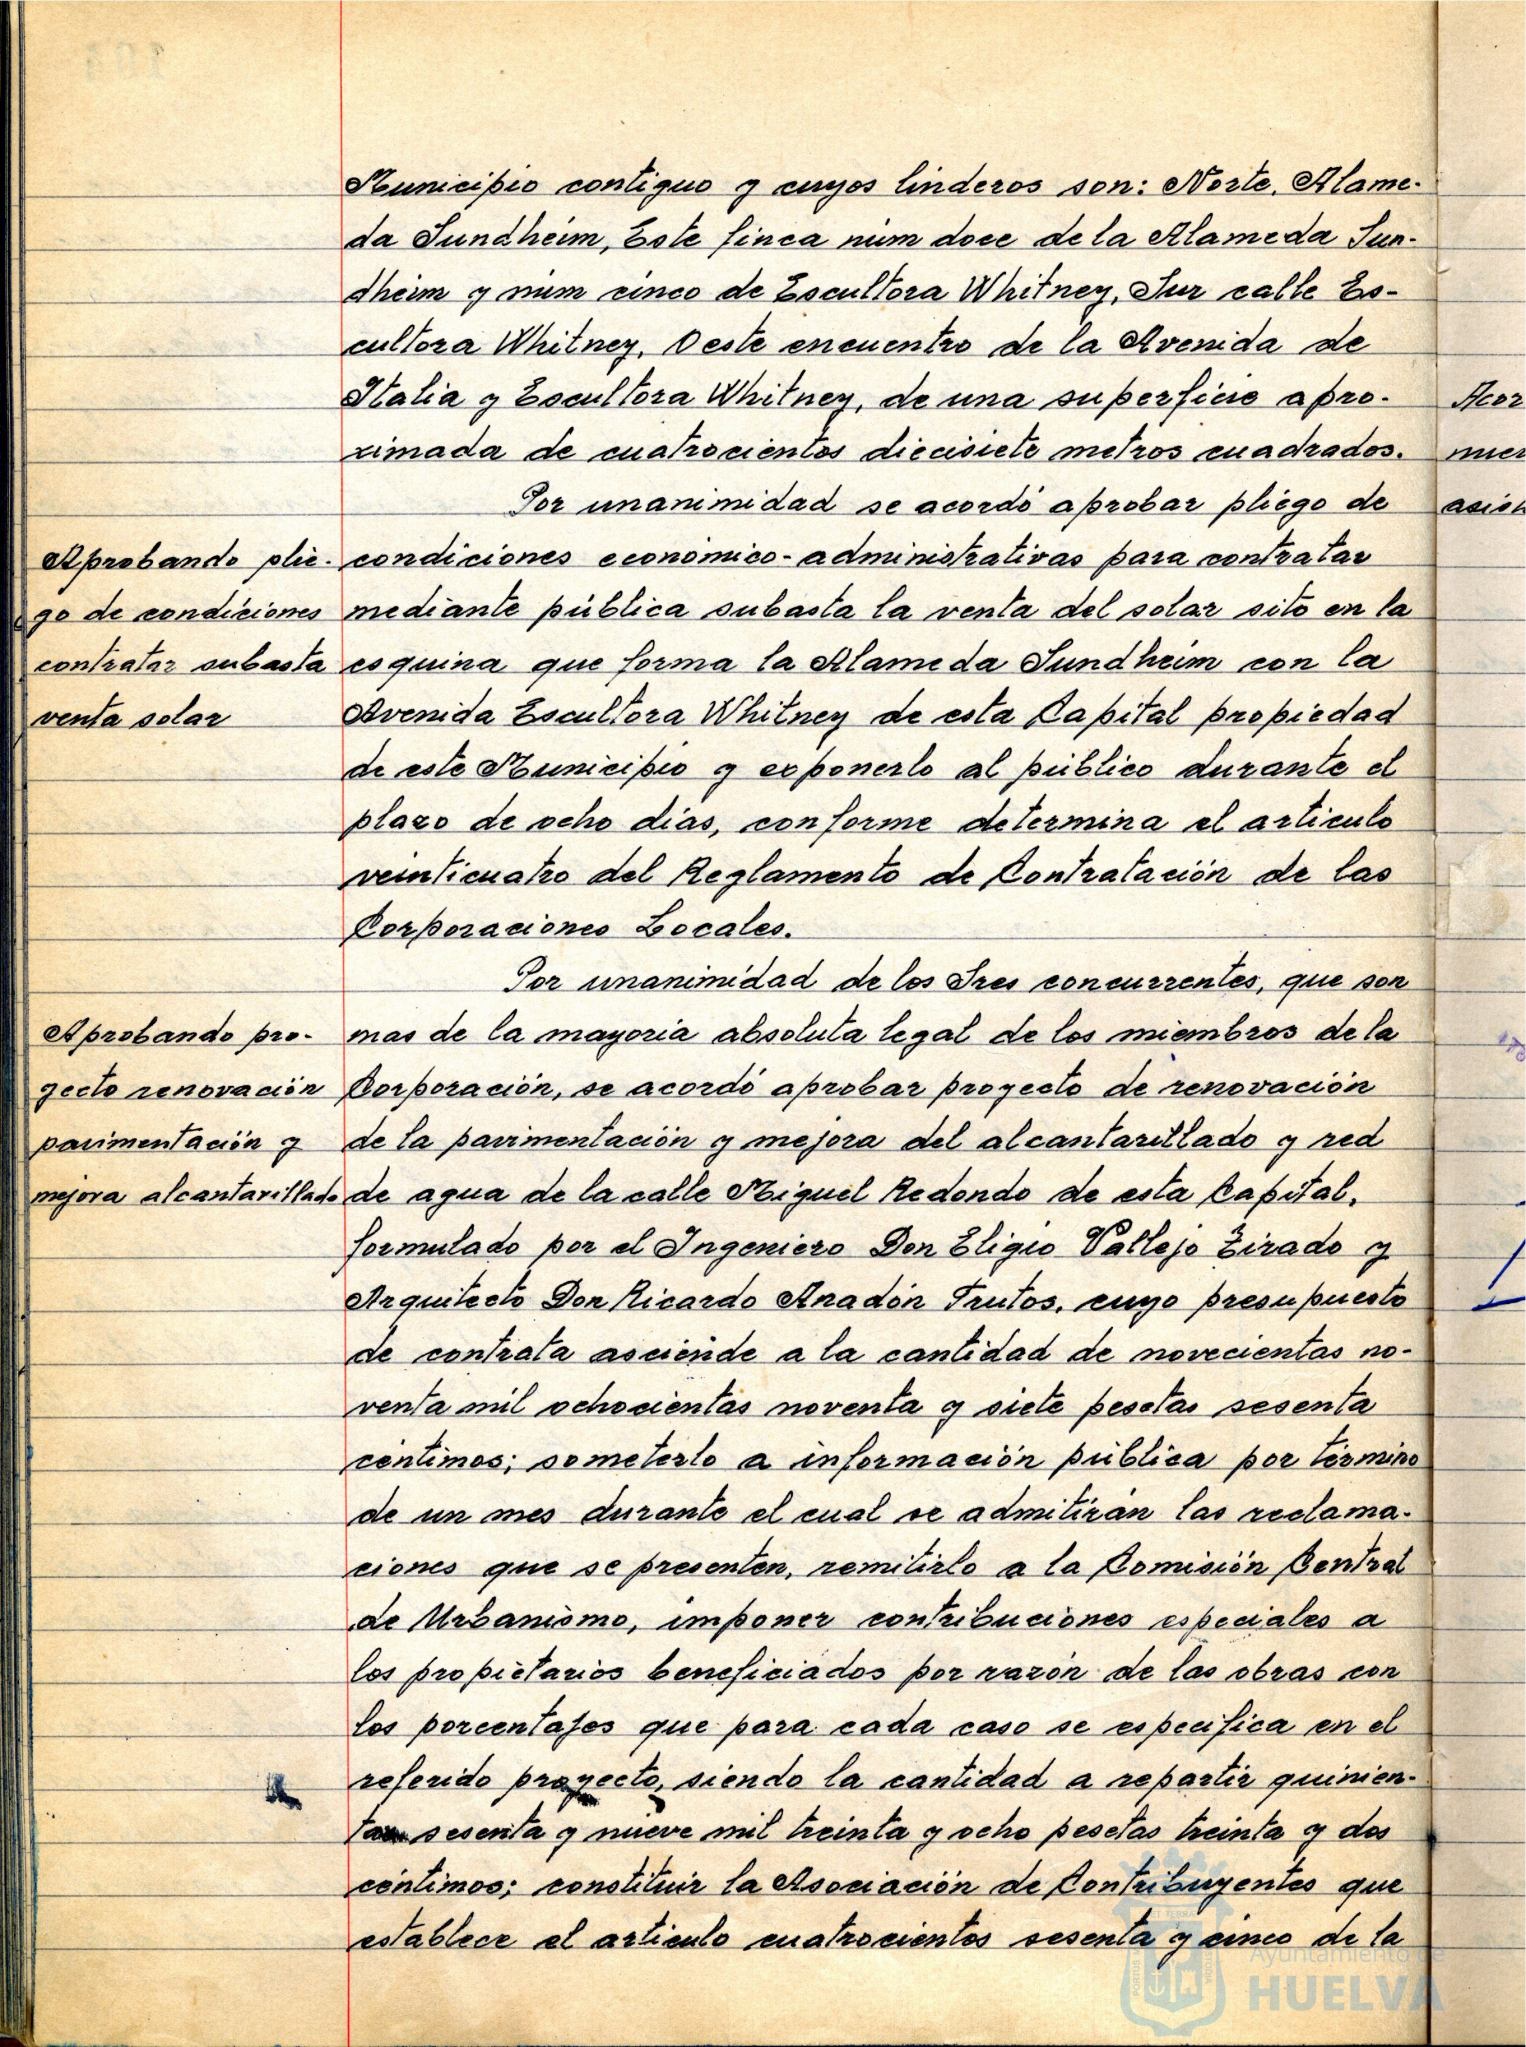 Municipio contiguo y cuyos linderos son: Norte, Alame-
da Sundheim, Este finca núm doce de la Alameda Sun-
dheim y núm cinco de Escultora Whitney, Sur calle Es-
cultora Whitney, Oeste encuentro de la Avenida de
Italia y Escultora Whitney, de una superficie apro-
ximada de cuatrocientos diecisiete metros cuadrados.
Por unanimidad se acordó aprobar pliego de
Aprobando plie- condiciones económico-administrativas para contratar
go de condiciones mediante pública subasta la venta del solar sito en la
contratar subasta esquina que forma la Alameda Sundheim con la
venta solar Avenida Escultora Whitney de esta Capital propiedad
de este Municipio y exponerlo al público durante el
plazo de ocho días, conforme determina el artículo
veinticuatro del Reglamento de Contratación de las
Corporaciones Locales.
Por unanimidad de los Sres concurrentes, que son
Aprobando pro- mas de la mayoría absoluta legal de los miembros de la
yecto renovación Corporación, se acordó aprobar proyecto de renovación
pavimentación y de la pavimentación y mejora del alcantarillado y red
mejora alcantarillado de agua de la calle Miguel Redondo de esta Capital,
formulado por el Ingeniero Don Eligio Vallejo Zirado y
Arquitecto Don Ricardo Anadón Frutos, cuyo presupuesto
de contrata asciende a la cantidad de novecientas no-
venta mil ochocientas noventa y siete pesetas sesenta
céntimos; someterlo a información pública por término
de un mes durante el cual se admitirán las reclama-
ciones que se presenten, remitirlo a la Comisión Central
de Urbanismo, imponer contribuciones especiales a
los propietarios beneficiados por razón de las obras con
los porcentajes que para cada caso se especifica en el
referido proyecto, siendo la cantidad a repartir quinien-
tas sesenta y nueve mil treinta y ocho pesetas treinta y dos
céntimos; constituir la Asociación de Contribuyentes que
establece el artículo cuatrocientos sesenta y cinco de la
Ayuntamiento de
HUELVA
Acor
asien